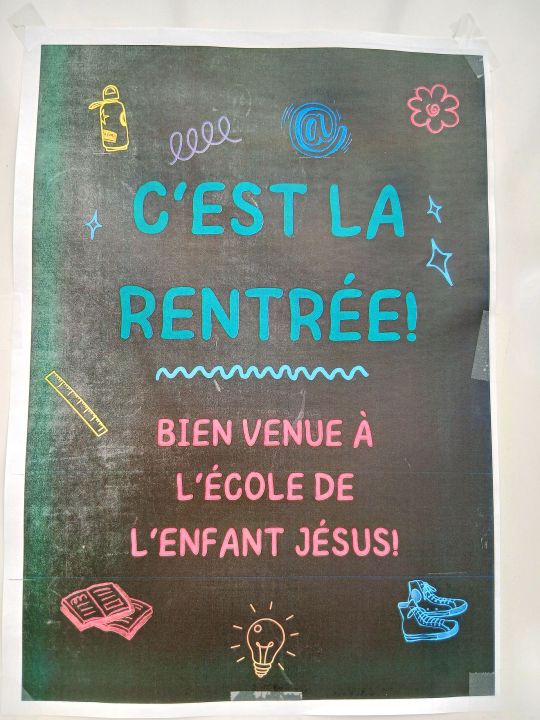 @
C'EST LA
RENTRÉE!
BIEN VENUE À
L'ÉCOLE DE
L'ENFANT JÉSUS!